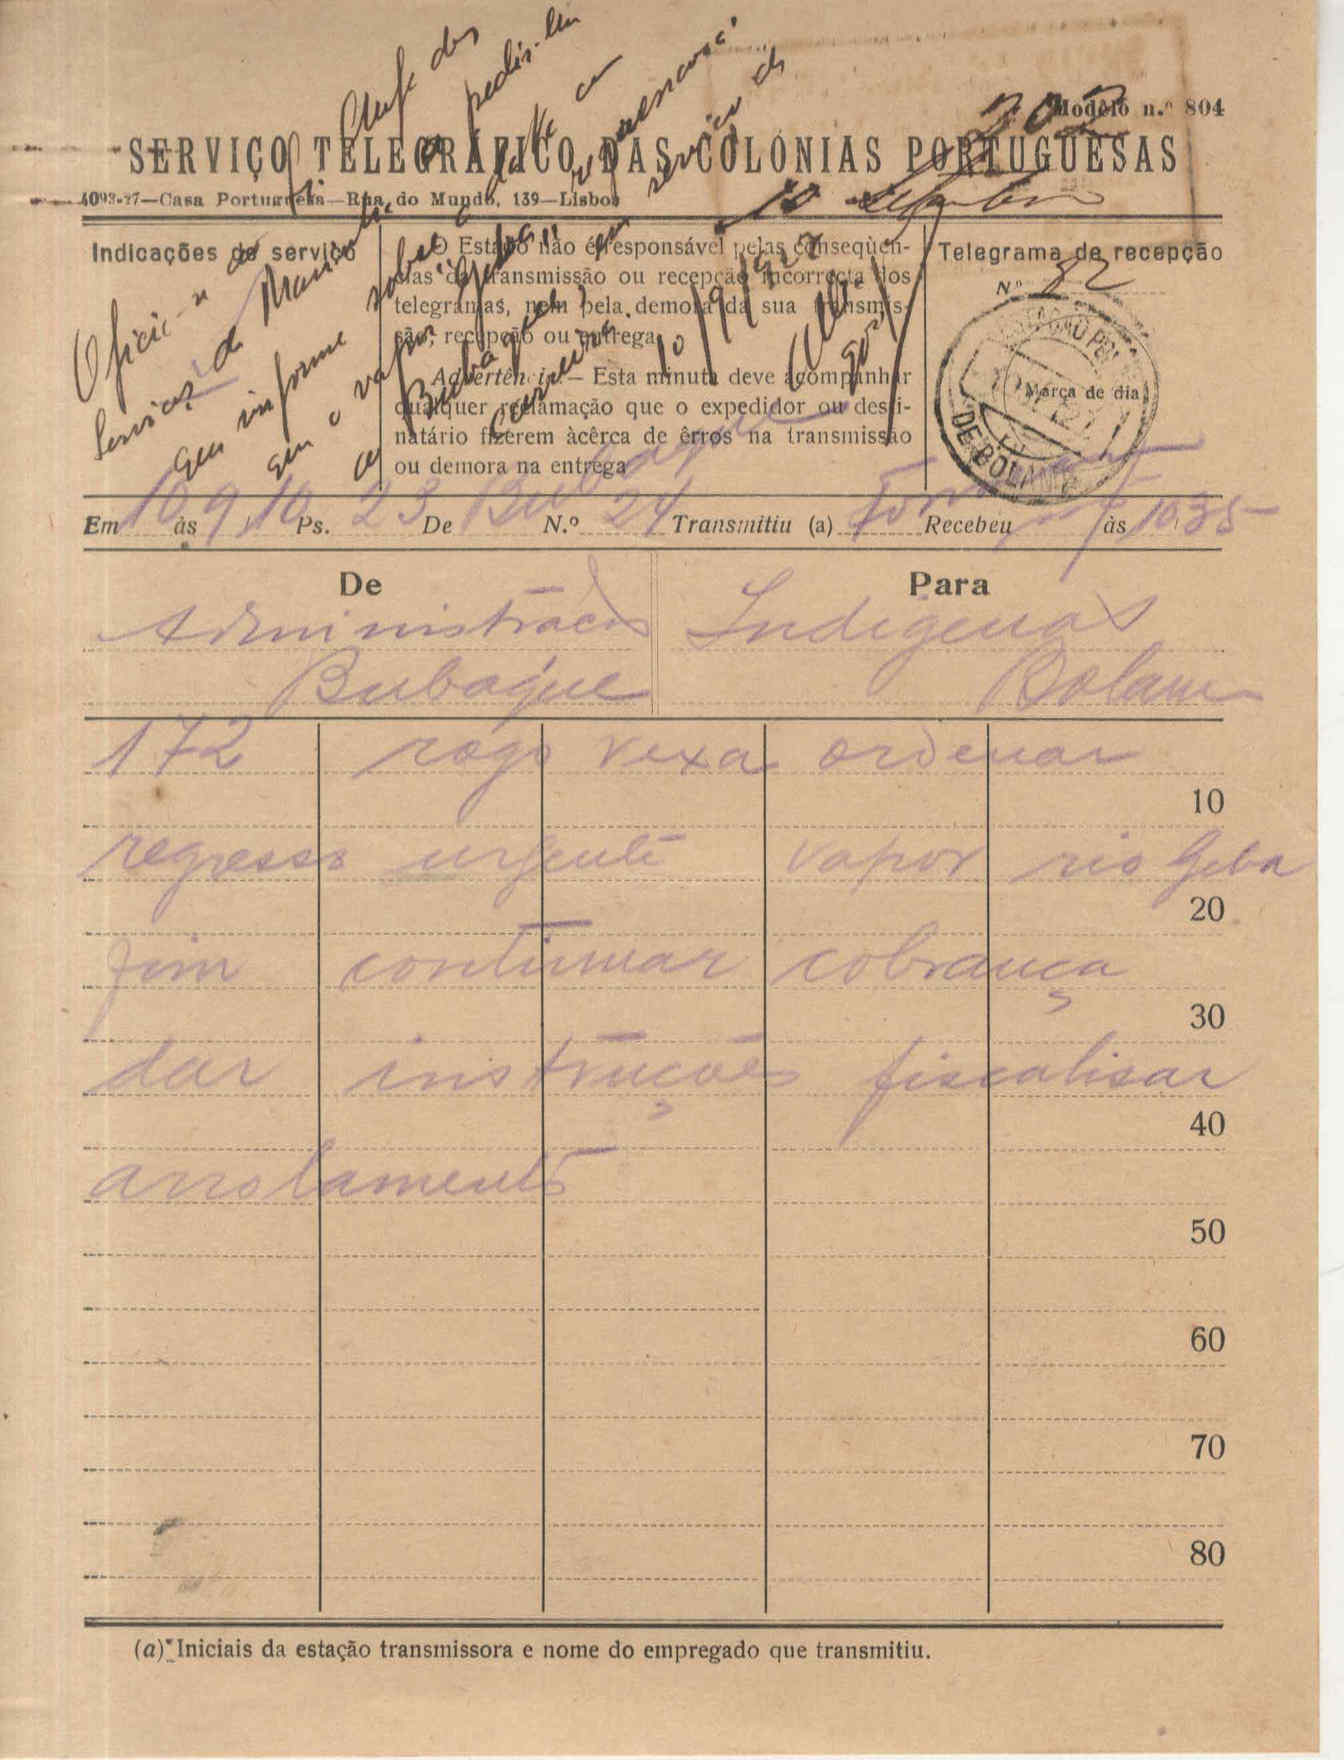 Modêlo n.º 804
302
SERVIÇO TELEGRÁFICO DAS COLÓNIAS PORTUGUESAS
4093-27—Casa Portuguesa—Rua do Mundo, 139—Lisboa
10 Setembro
Indicações de serviço
Oficie-se ao Chefe dos
Serviços de Marinha
que informe sobre a
em o vapor "Geba"
a Bubaque
10/9/1927
O Estado não é responsável pelas conseqüên-
cias da transmissão ou recepção incorrecta dos
telegramas, nem pela demora da sua transmis-
são, recepção ou entrega.
Advertência.— Esta minuta deve acompanhar
qualquer reclamação que o expedidor ou desti-
natário fizerem àcêrca de êrros na transmissão
ou demora na entrega
Telegrama de recepção
N.º 82
Marca de dia
DE BOLAMA
Em 10 às 9,10 Ps. 23 De Bubaque N.º 24 Transmitiu (a) Recebeu às 10,35
De
Para
Administração
Bubaque
Indigenas
Bolama
172 rogo vexa ordenar
10
regresso urgente vapor rio Geba
20
fim continuar cobrança
30
dar instruções fiscalisar
40
arrolamento
50
60
70
80
(a) Iniciais da estação transmissora e nome do empregado que transmitiu.